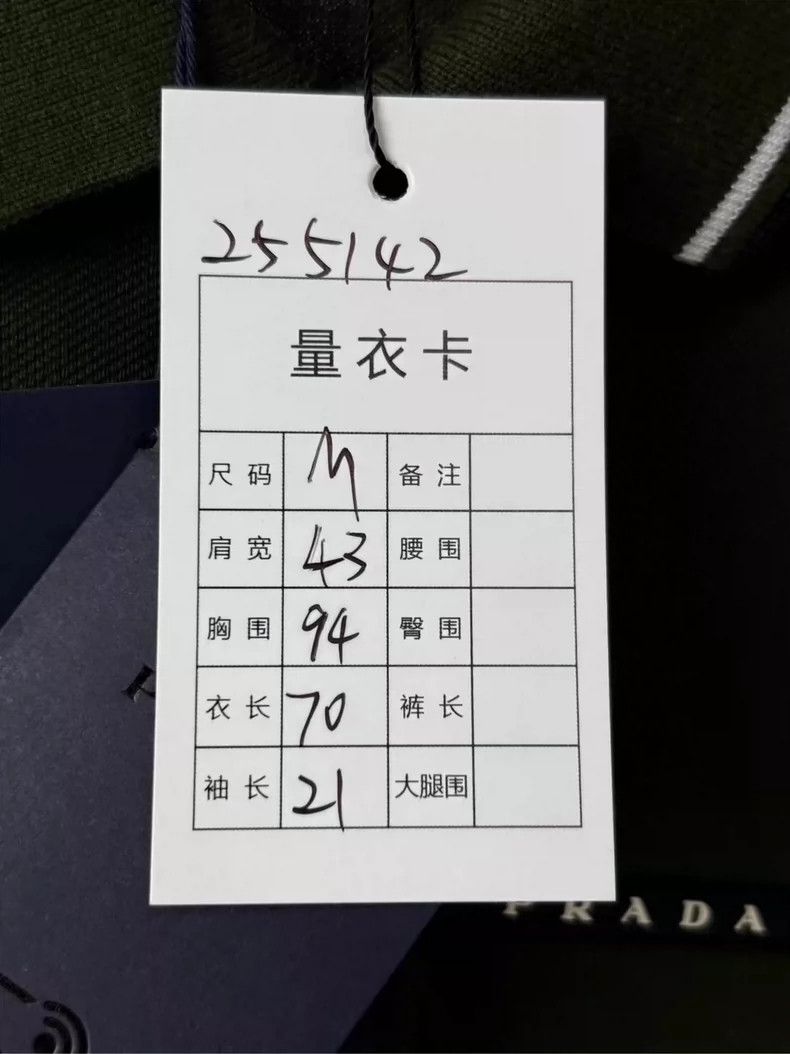 255142
量衣卡
尺码 M 备注
肩宽 43 腰围
胸围 94 臀围
衣长 70 裤长
袖长 21 大腿围
PRADA